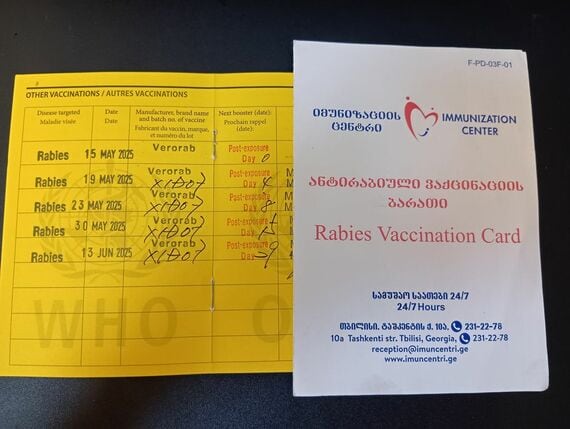 OTHER VACCINATIONS / AUTRES VACCINATIONS
Disease targeted
Maladie visée
Date
Date
Manufacturer, brand name
and batch no. of vaccine
Fabricant du vaccin, marque,
et numéro du lot
Next booster (date):
Prochain rappel
(date):
Rabies 15 MAY 2025 Verorab Post-exposure
Day 0
Rabies 19 MAY 2025 Verorab Post-exposure
X1D07 Day 4
Rabies 23 MAY 2025 Verorab Post-exposure
X1D07 Day 8
Rabies 30 MAY 2025 Verorab Post-exposure
X1D07 Day
Rabies 13 JUN 2025 Verorab Post-exposure
X1D07 Day
WHO
F-PD-03F-01
იმუნიზაციის
ცენტრი
IMMUNIZATION
CENTER
ანტირაბიული ვაქცინაციის
ბარათი
Rabies Vaccination Card
სამუშაო საათები 24/7
24/7 Hours
თბილისი, ტაშკენტის ქ. 10ა, 231-22-78
10a Tashkenti str. Tbilisi, Georgia, 231-22-78
reception@imuncentri.ge
www.imuncentri.ge